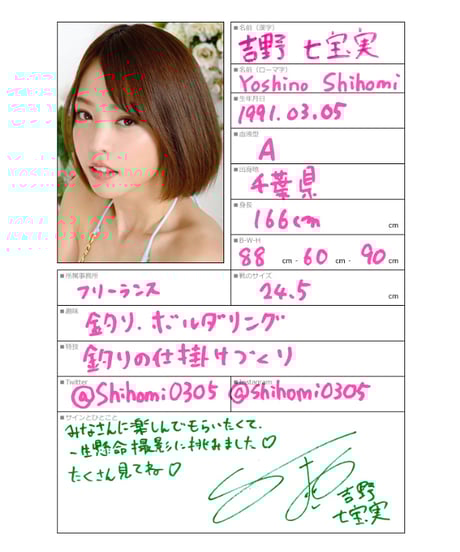 ■名前（漢字）
吉野 七宝実
■名前（ローマ字）
Yoshino Shihomi
■生年月日
1991.03.05
■血液型
A
■出身地
千葉県
■身長
166cm cm
■B-W-H
88 cm - 60 cm - 90 cm
■所属事務所
フリーランス
■靴のサイズ
24.5 cm
■趣味
釣り、ボルダリング
■特技
釣りの仕掛けづくり
■Twitter
@Shihomi0305
■Instagram
@shihomi0305
■サインとひとこと
みなさんに楽しんでもらいたくて、
一生懸命撮影に挑みました♡
たくさん見てね♡
吉野
七宝実